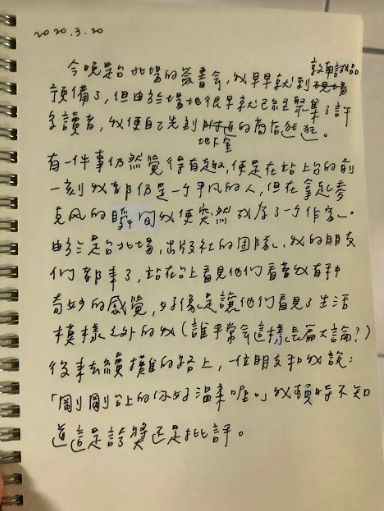 2020.3.20
今晚是台北場的簽書會,我早早就到敦南誠品
預備了,但由於場地很早就已經聚集了許
多讀者,我便自己先到地下室的商店逛逛。
有一件事仍然覺得有趣,便是在站上台的前
一刻我都仍是一個平凡的人,但在拿起麥
克風的瞬間我便突然成為了一個作家。
由於是台北場,出版社的團隊、我的朋友
們都來了,站在台上看見他們看著我有種
奇妙的感覺,好像是讓他們看見了生活
模樣之外的我(誰平常會這樣長篇大論?)
後來去續攤的路上,一位朋友和我說:
「剛剛台上的你好溫柔喔。」我頓時不知
道這是誇獎還是批評。